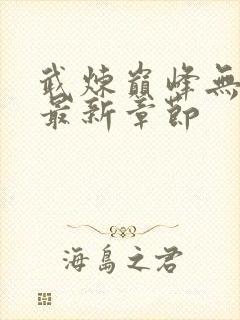 武煉巔峰無
最新章節
海島之君